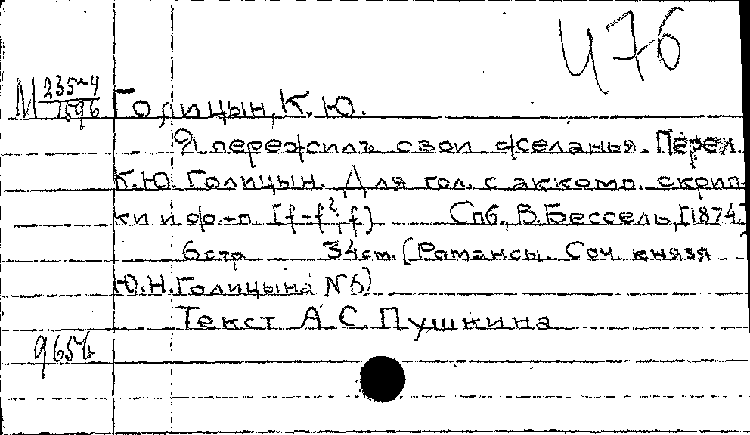 Ч76
М 235-4
1596
Голицын, К. Ю.
Я пережилъ свои желанья. Перел.
К.Ю. Голицын. Для гол. с аккомп. скрип-
ки и ф.-п. [f-f²; f] Спб., В. Бессель, [1874]
6 стр 34 см. (Романсы. Соч. князя
Ю.Н. Голицына №5)
Текст А.С. Пушкина